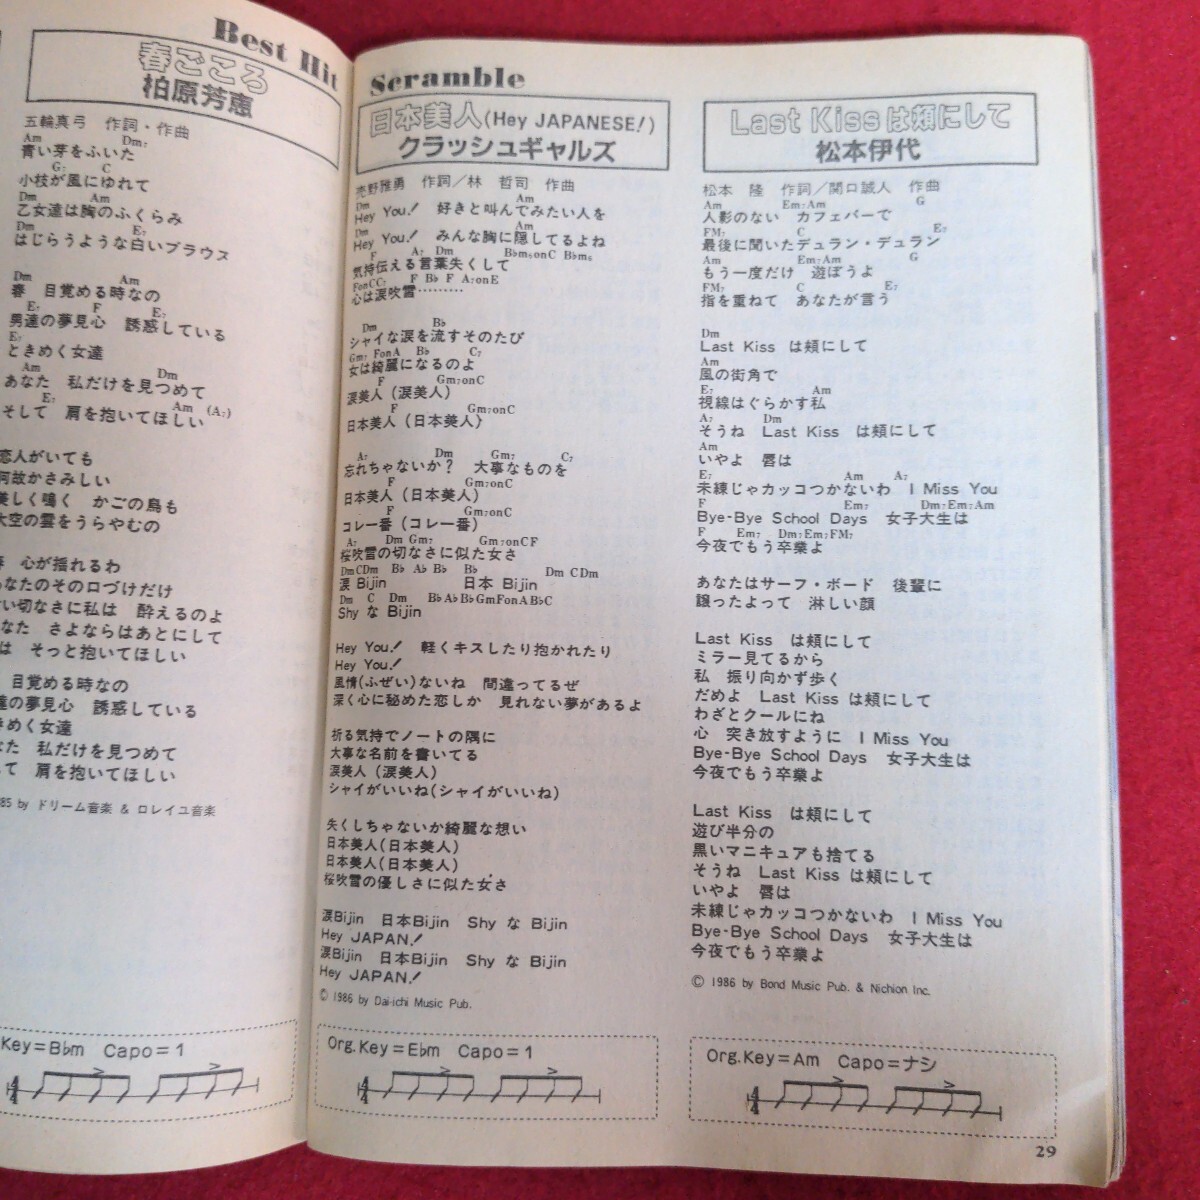 Best Hit
春ごころ
柏原芳恵
五輪真弓 作詞・作曲
Am Dm7
青い芽をふいた
G7 C
小枝が風にゆれて
Dm Am
乙女達は胸のふくらみ
Dm E7
はじらうような白いブラウス
Dm Am
春 目覚める時なの
E7 F E7
男達の夢見心 誘惑している
E7
ときめく女達
Am Dm
あなた 私だけを見つめて
E7 Am (A7)
そして 肩を抱いてほしい
恋人がいても
何故かさみしい
美しく鳴く かごの鳥も
大空の雲をうらやむの
心が揺れるわ
なたのその口づけだけ
い切なさに私は 酔えるのよ
なた さよならはあとにして
は そっと抱いてほしい
目覚める時なの
達の夢見心 誘惑している
きめく女達
た 私だけを見つめて
て 肩を抱いてほしい
85 by ドリーム音楽 & ロレイユ音楽
Key=B♭m Capo=1
Scramble
日本美人(Hey JAPANESE!)
クラッシュギャルズ
売野雅勇 作詞/林 哲司 作曲
Dm Am
Hey You! 好きと叫んでみたい人を
Dm Am
Hey You! みんな胸に隠してるよね
F A7 Dm B♭m5onC B♭m6
気持伝える言葉失くして
FonC C7 F B♭ F A7onE
心は涙吹雪………
Dm B♭
シャイな涙を流すそのたび
Gm7 FonA B♭ C7
女は綺麗になるのよ
F Gm7onC
涙美人(涙美人)
F Gm7onC
日本美人(日本美人)
A7 Dm Gm7 C7
忘れちゃないか? 大事なものを
F Gm7onC
日本美人(日本美人)
F Gm7onC
コレ一番(コレ一番)
A7 Dm Gm7 Gm7onC F
桜吹雪の切なさに似た女さ
Dm C Dm B♭ A♭ B♭ B♭ Dm C Dm
涙 Bijin 日本 Bijin
Dm C Dm B♭ A♭ B♭ Gm FonA B♭ C
Shy な Bijin
Hey You! 軽くキスしたり抱かれたり
Hey You!
風情(ふぜい)ないね 間違ってるぜ
深く心に秘めた恋しか 見れない夢があるよ
祈る気持でノートの隅に
大事な名前を書いてる
涙美人(涙美人)
シャイがいいね(シャイがいいね)
失くしちゃないか綺麗な想い
日本美人(日本美人)
日本美人(日本美人)
桜吹雪の優しさに似た女さ
涙Bijin 日本Bijin Shy な Bijin
Hey JAPAN!
涙Bijin 日本Bijin Shy な Bijin
Hey JAPAN!
© 1986 by Dai-ichi Music Pub.
Org.Key=E♭m Capo=1
Last Kissは頬にして
松本伊代
松本 隆 作詞/関口誠人 作曲
Am Em7 Am G
人影のない カフェバーで
FM7 C E7
最後に聞いたデュラン・デュラン
Am Em7 Am G
もう一度だけ 遊ぼうよ
FM7 C E7
指を重ねて あなたが言う
Dm
Last Kiss は頬にして
Am
風の街角で
E7 Am
視線はぐらかす私
A7 Dm
そうね Last Kiss は頬にして
Am
いやよ 唇は
E7 Am A7
未練じゃカッコつかないわ I Miss You
F Em7 Dm7 Em7 Am
Bye-Bye School Days 女子大生は
F Em7 Dm7 Em7 FM7
今夜でもう卒業よ
あなたはサーフ・ボード 後輩に
譲ったよって 淋しい顔
Last Kiss は頬にして
ミラー見てるから
私 振り向かず歩く
だめよ Last Kiss は頬にして
わざとクールにね
心 突き放すように I Miss You
Bye-Bye School Days 女子大生は
今夜でもう卒業よ
Last Kiss は頬にして
遊び半分の
黒いマニキュアも捨てる
そうね Last Kiss は頬にして
いやよ 唇は
未練じゃカッコつかないわ I Miss You
Bye-Bye School Days 女子大生は
今夜でもう卒業よ
© 1986 by Bond Music Pub. & Nichion Inc.
Org.Key=Am Capo=ナシ
29